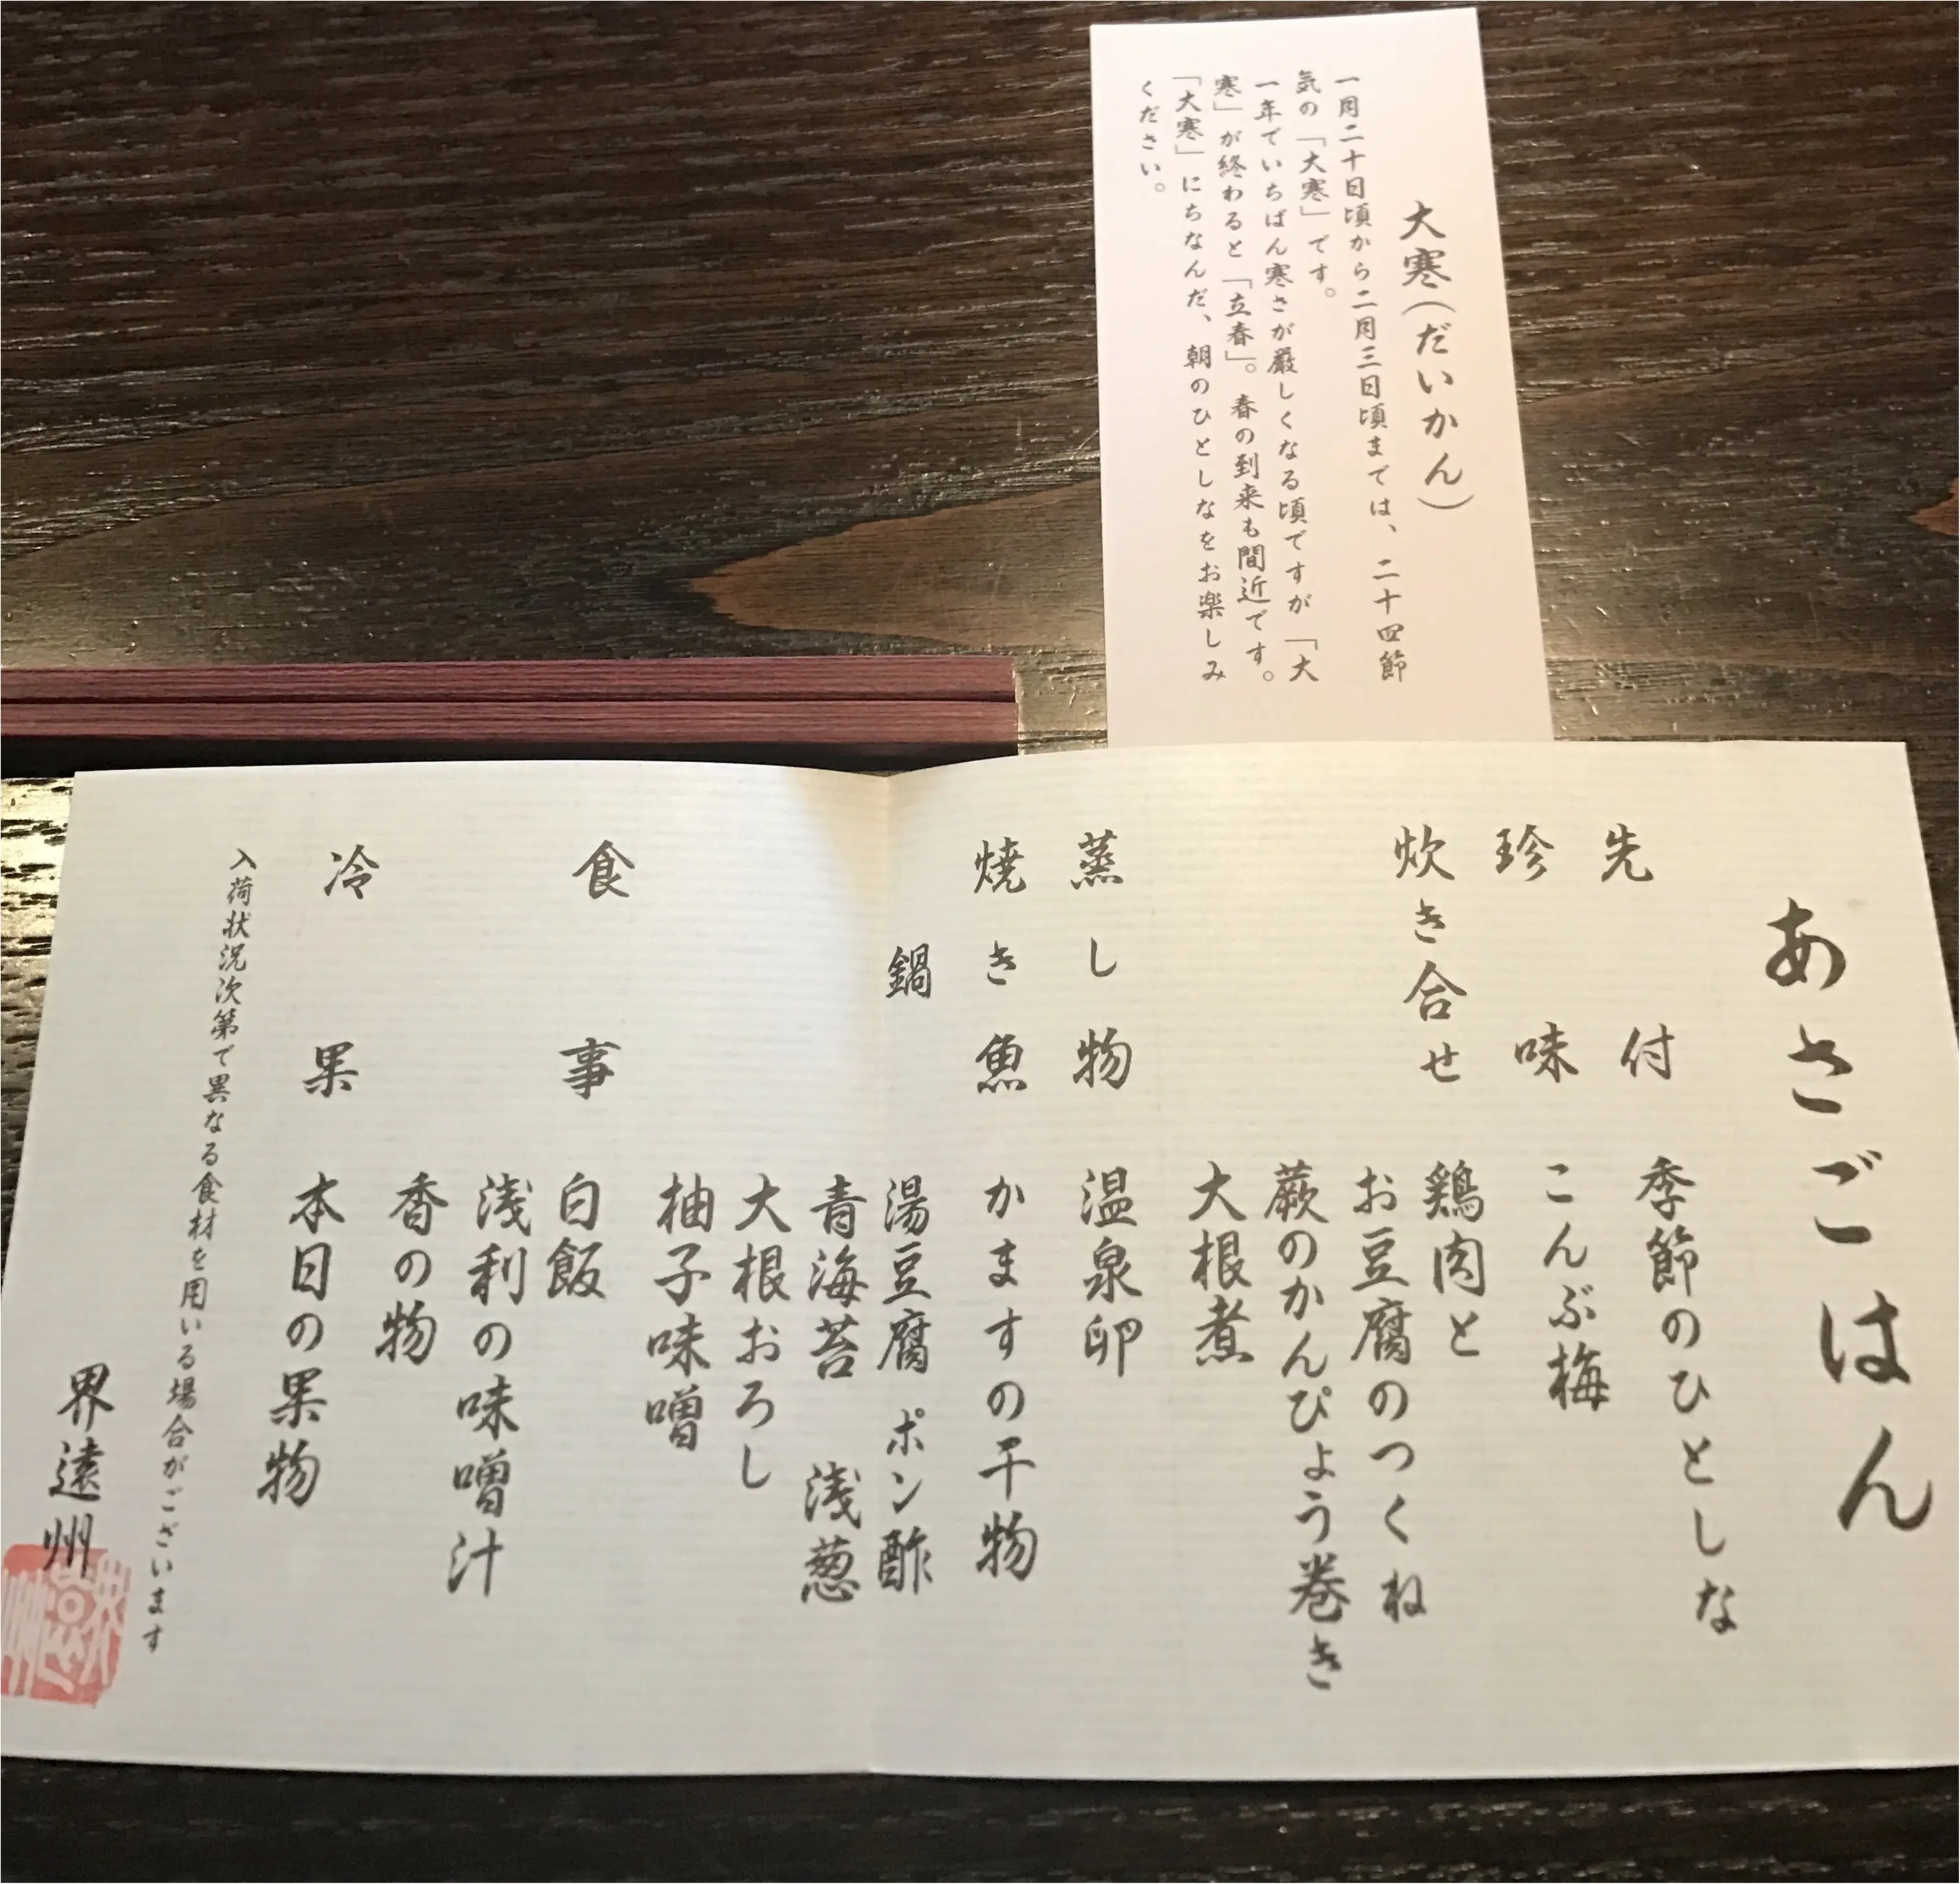 大寒(だいかん)
一月二十日頃から二月三日頃までは、二十四節
気の「大寒」です。
一年でいちばん寒さが厳しくなる頃ですが「大
寒」が終わると「立春」。春の到来も間近です。
「大寒」にちなんだ、朝のひとしなをお楽しみ
ください。
あさごはん
先付 季節のひとしな
珍味 こんぶ梅
炊き合せ 鶏肉と
お豆腐のつくね
蕨のかんぴょう巻き
大根煮
蒸し物 温泉卵
焼き魚 かますの干物
鍋 湯豆腐 ポン酢
青海苔 浅葱
大根おろし
柚子味噌
食事 白飯
浅利の味噌汁
香の物
冷果 本日の果物
入荷状況次第で異なる食材を用いる場合がございます
界遠州